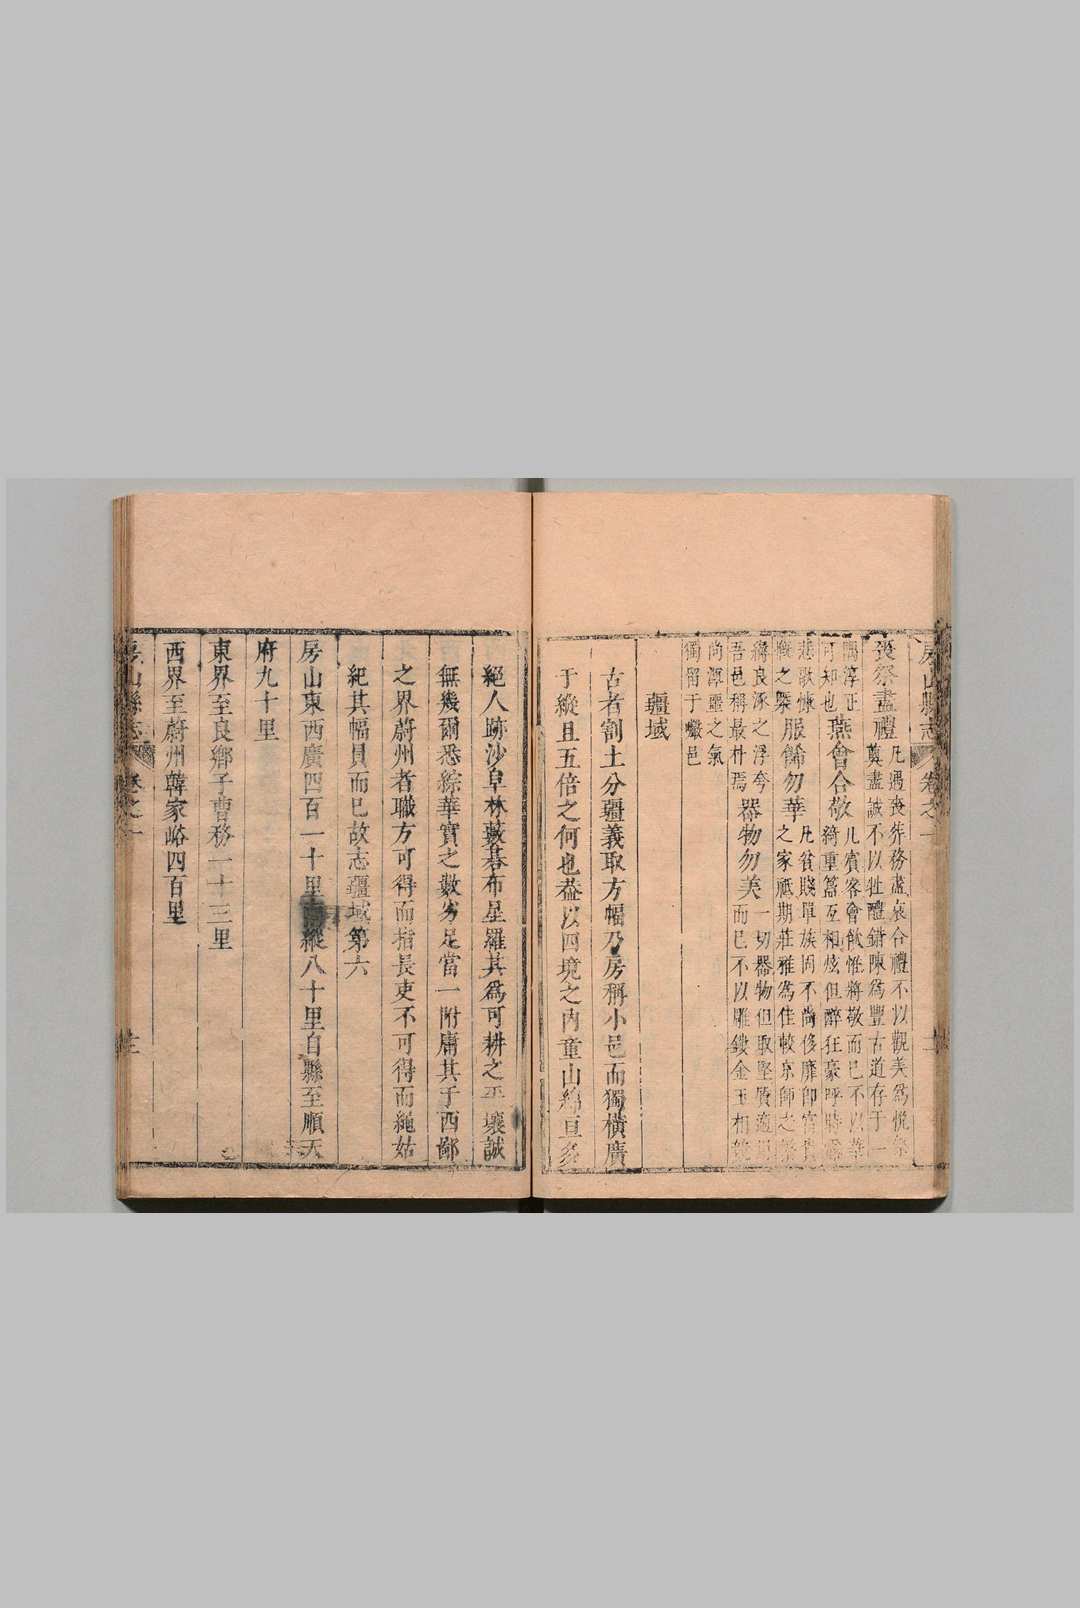 房山縣志 卷之一
喪祭盡禮 凡遇喪葬務盡哀合禮不以觀美爲悅祭
奠盡誠不以牲醴錯陳爲豐古道存于一
淳正 燕會合敬 凡賓客會飲惟將敬而已不以華
可知也 綺重篇互相炫但醉狂豪呼時
悲歌慷慨之槩 服飾勿華 凡貧賤單族固不尚侈靡即宦貴
之家祗期莊雅爲佳較京師之
綺良涿之浮夸 器物勿美 一切器物但取堅質適用
吾邑稱最朴焉 而已不以雕鏤金玉相
尚渾噩之氣
獨留于巖邑
疆域
古者割土分疆義取方幅乃房稱小邑而獨橫廣
于縱且五倍之何也葢以四境之內童山綿亘多
絕人跡沙阜林藪碁布星羅其爲可耕之平壤誠
無幾爾悉綜華實之數劣足當一附庸其于西鄙
之界蔚州者職方可得而指長吏不可得而繩姑
紀其幅員而已故志疆域第六
房山東西廣四百一十里南縱八十里自縣至順天
府九十里
東界至良鄉子曹務一十三里
西界至蔚州韓家峪四百里
房山縣志 卷之一